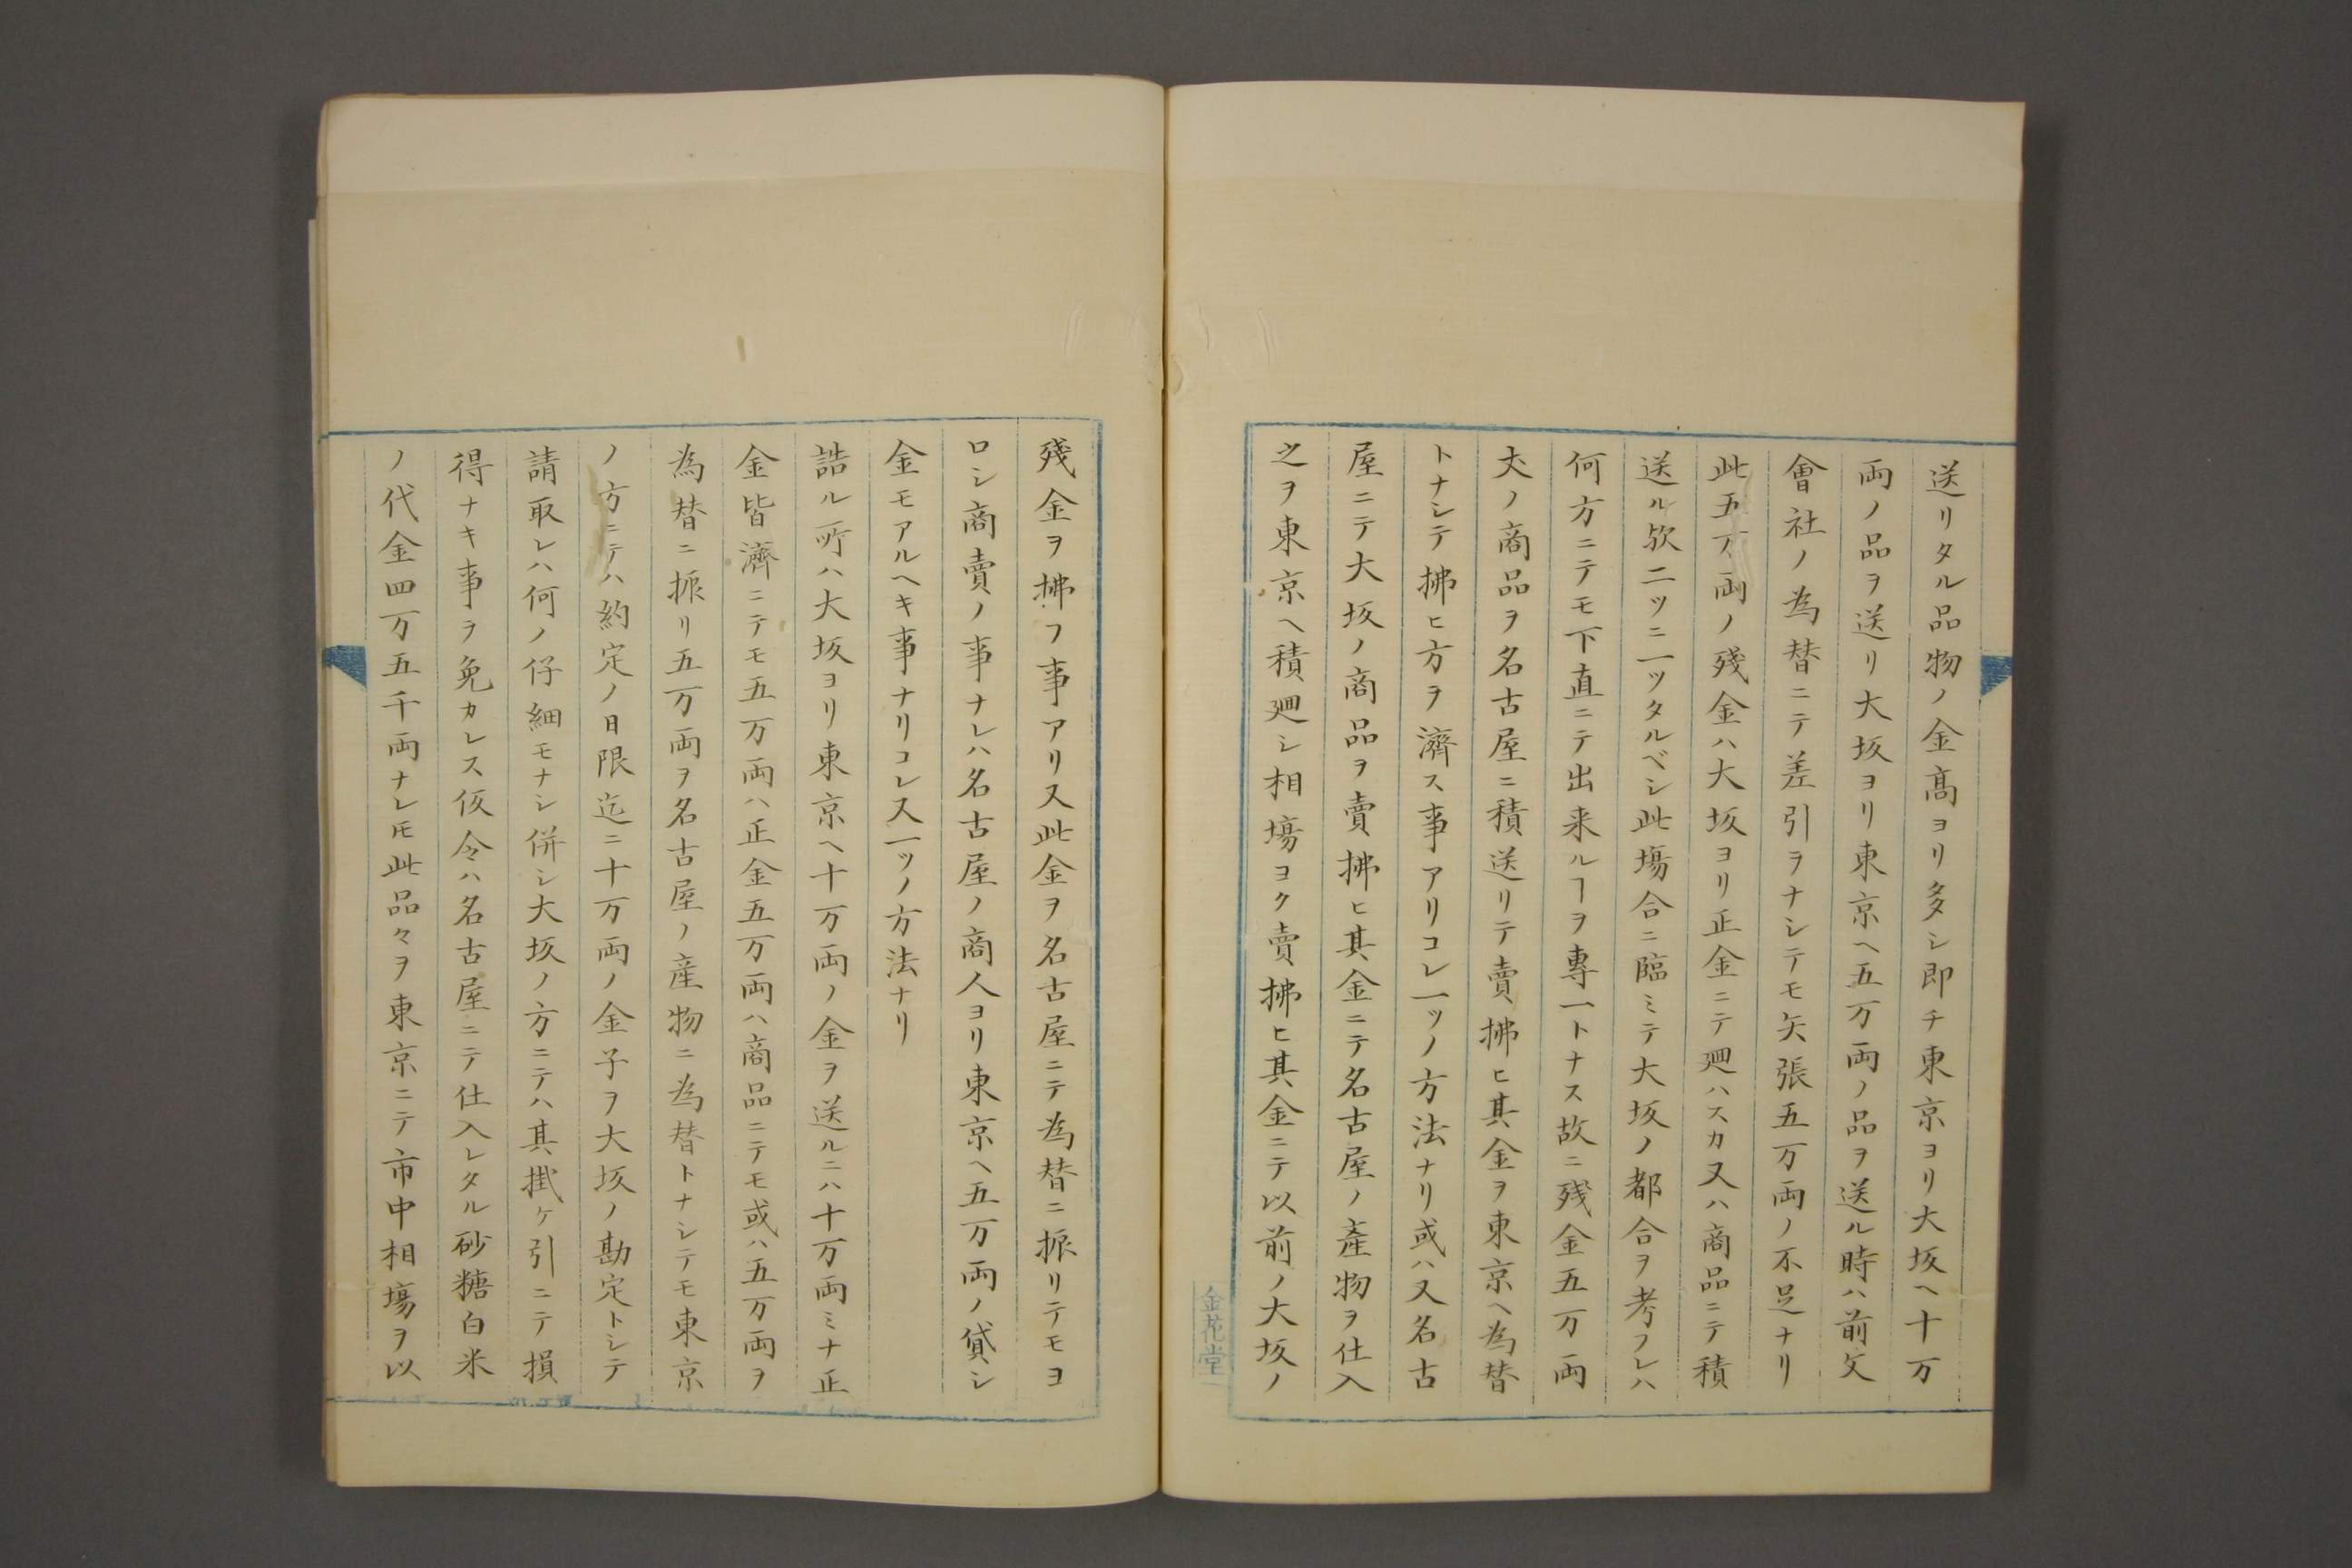 送リタル品物ノ金髙ヨリ多シ即チ東京ヨリ大坂ヘ十万
両ノ品ヲ送リ大坂ヨリ東京ヘ五万両ノ品ヲ送ル時ハ前文
會社ノ為替ニテ差引ヲナシテモ矢張五万両ノ不足ナリ
此五万両ノ残金ハ大坂ヨリ正金ニテ廻ハスカ又ハ商品ニテ積
送ル欤二ツニ一ツタルベシ此塲合ニ臨ミテ大坂ノ都合ヲ考フレハ
何方ニテモ下直ニテ出来ルヿヲ專一トナス故ニ残金五万両
大ノ商品ヲ名古屋ニ積送リテ賣拂ヒ其金ヲ東京ヘ為替
トナシテ拂ヒ方ヲ濟ス事アリコレ一ツノ方法ナリ或ハ又名古
屋ニテ大坂ノ商品ヲ賣拂ヒ其金ニテ名古屋ノ產物ヲ仕入
之ヲ東京ヘ積廻シ相塲ヨク賣拂ヒ其金ニテ以前ノ大坂ノ
金花堂
殘金ヲ拂フ事アリ又此金ヲ名古屋ニテ為替ニ振リテモヨ
ロシ商賣ノ事ナレハ名古屋ノ商人ヨリ東京ヘ五万両ノ貸シ
金モアルヘキ事ナリコレ又一ツノ方法ナリ
詰ル所ハ大坂ヨリ東京ヘ十万両ノ金ヲ送ルニハ十万両ミナ正
金皆濟ニテモ五万両ハ正金五万両ハ商品ニテモ或ハ五万両ヲ
為替ニ振リ五万両ヲ名古屋ノ産物ニ為替トナシテモ東京
ノ方ニテハ約定ノ日限迄ニ十万両ノ金子ヲ大坂ノ勘定トシテ
請取レハ何ノ仔細モナシ併シ大坂ノ方ニテハ其掛ケ引ニテ損
得ナキ事ヲ免カレス仮令ハ名古屋ニテ仕入レタル砂糖白米
ノ代金四万五千両ナレ𪜈此品々ヲ東京ニテ市中相塲ヲ以